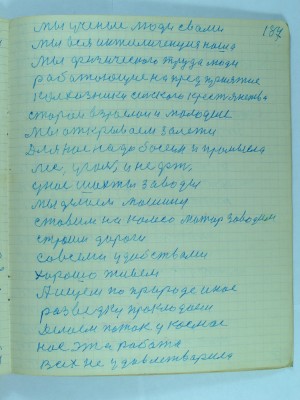 187
мы ученые люди с вами
мы вся интилигенция наша
мы физического труда люди
работающие на предприятие
колхозники сельского крестьянства
старои взраслои и молодые
мы открываем залежи
Для нас надо босыи и промысла
лес, уголь, и нефть,
у нас шахты заводы
мы делаем машины
ставим на колесо матор заводим
строим дороги
совсеми удобствами
хорошо живем
Я ищем по природе иное
разведку прокладаем
Делаем паток у космос
нас эта работа
Всех не удавлетварила